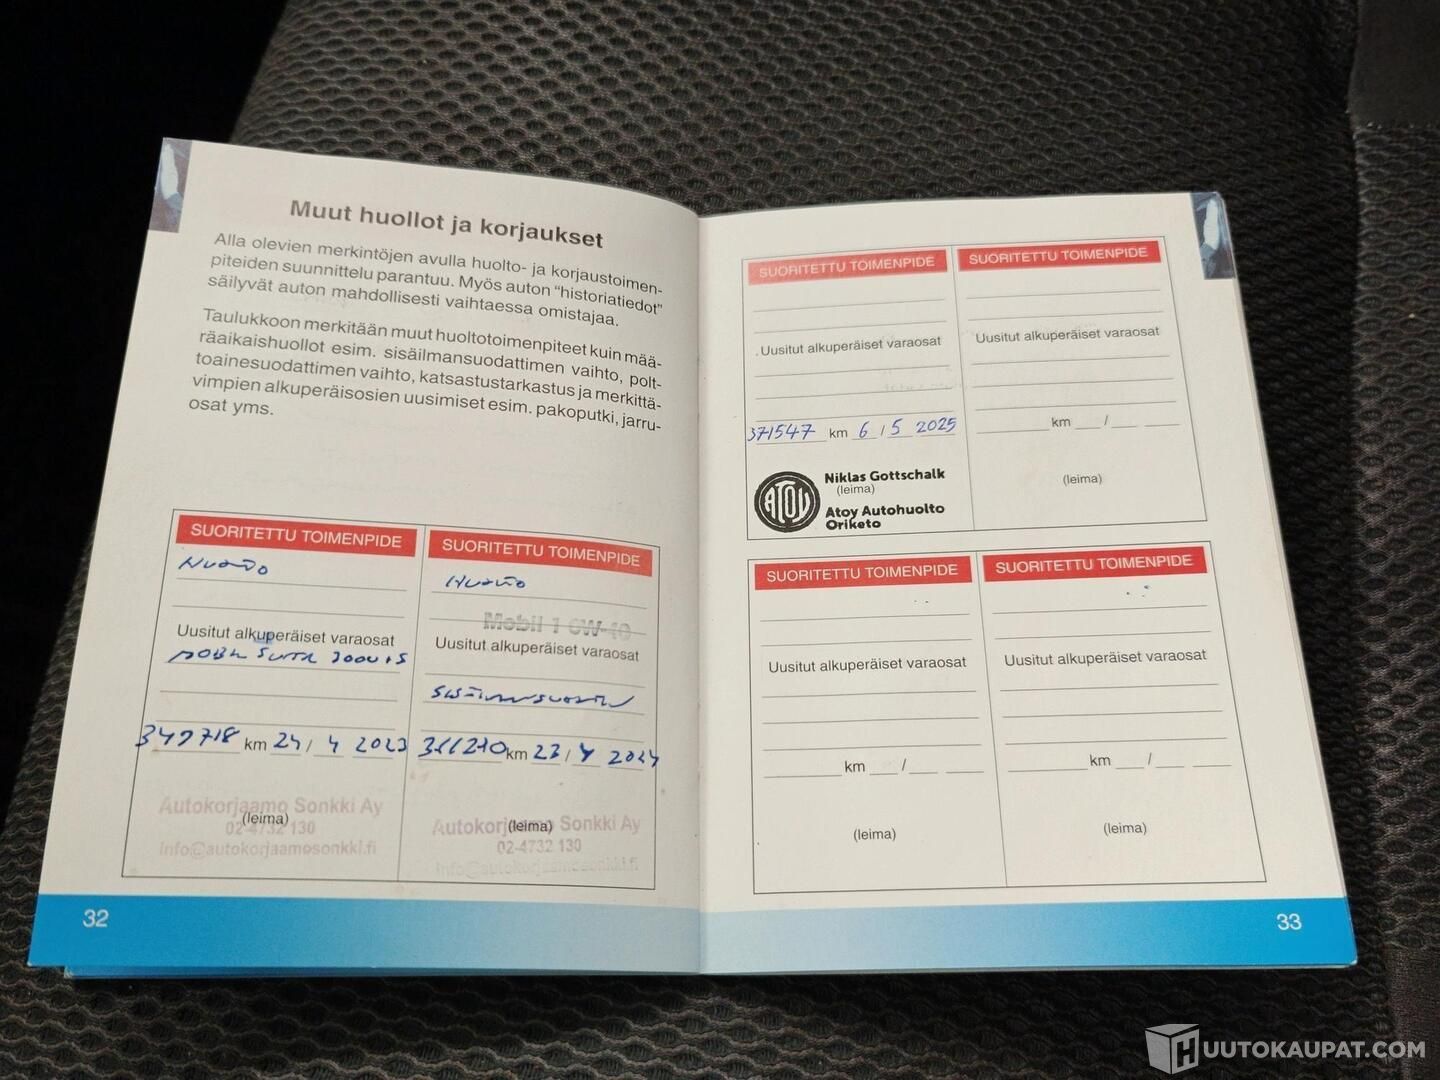 Muut huollot ja korjaukset
Alla olevien merkintöjen avulla huolto- ja korjaustoimen-
piteiden suunnittelu parantuu. Myös auton "historiatiedot"
säilyvät auton mahdollisesti vaihtaessa omistajaa.
Taulukkoon merkitään muut huoltotoimenpiteet kuin mää-
räaikaishuollot esim. sisäilmansuodattimen vaihto, polt-
toainesuodattimen vaihto, katsastustarkastus ja merkittä-
vimpien alkuperäisosien uusimiset esim. pakoputki, jarru-
osat yms.
SUORITETTU TOIMENPIDE
Huolto
Uusitut alkuperäiset varaosat
km 24 / 4 2023
Autokorjaamo Sonkki Ay
(leima)
02-4732 130
info@autokorjaamosonkki.fi
SUORITETTU TOIMENPIDE
Huolto
Mobil 1 0W-40
Uusitut alkuperäiset varaosat
km 23 / 4 2024
Autokorjaamo Sonkki Ay
(leima)
02-4732 130
info@autokorjaamosonkki.fi
32
SUORITETTU TOIMENPIDE
Uusitut alkuperäiset varaosat
371547 km 6 / 5 2025
ATOY
Niklas Gottschalk
(leima)
Atoy Autohuolto
Oriketo
SUORITETTU TOIMENPIDE
Uusitut alkuperäiset varaosat
km /
(leima)
SUORITETTU TOIMENPIDE
Uusitut alkuperäiset varaosat
km /
(leima)
SUORITETTU TOIMENPIDE
Uusitut alkuperäiset varaosat
km /
(leima)
33
HUUTOKAUPAT.COM